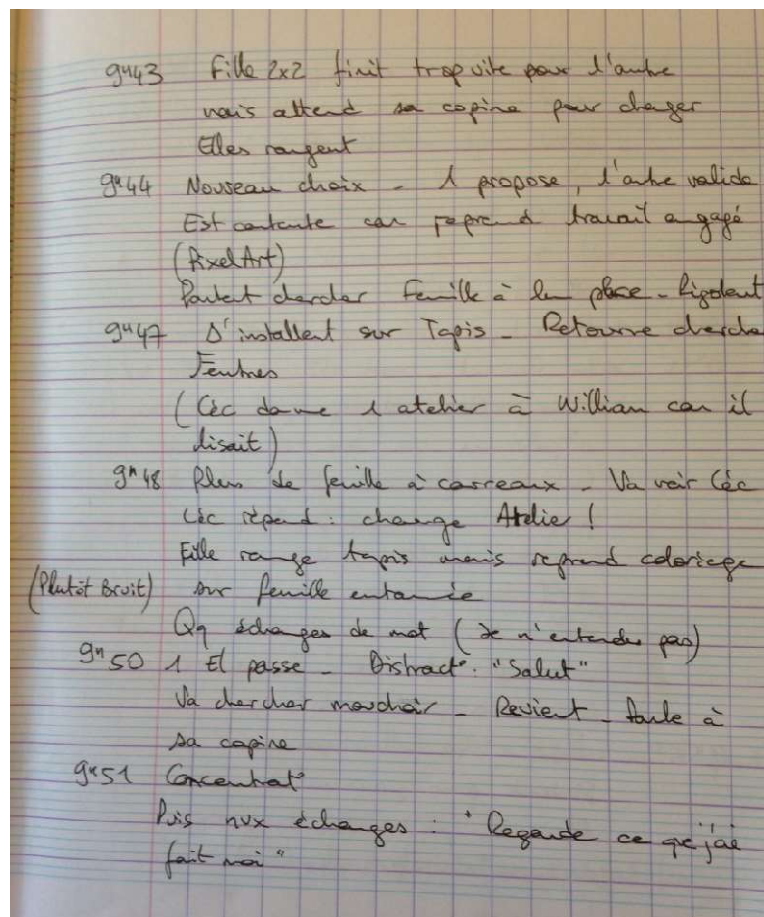 9h43 Fille 2x2 finit trop vite pour l'autre
mais attend sa copine pour changer
Elles rangent
9h44 Nouveau choix - 1 propose, l'autre valide
Est contente car reprend travail engagé
(PixelArt)
Partent chercher Feuille à leur place - Rigolent
9h47 S'installent sur Tapis - Retourne cherche
Feutres
(Céc donne 1 atelier à William car il
lisait)
9h48 Plus de feuille à carreaux - Va voir Céc
Céc répond : change Atelier !
Fille range tapis mais reprend coloriage
(Plutôt Bruit) sur feuille entamée
Qq échanges de mot (Je n'entends pas)
9h50 1 El passe - Distract°. "Salut"
Va chercher mouchoir - Revient - Parle à
sa copine
9h51 Concentrat°
Puis nvx échanges : "Regarde ce que j'ai
fait moi"